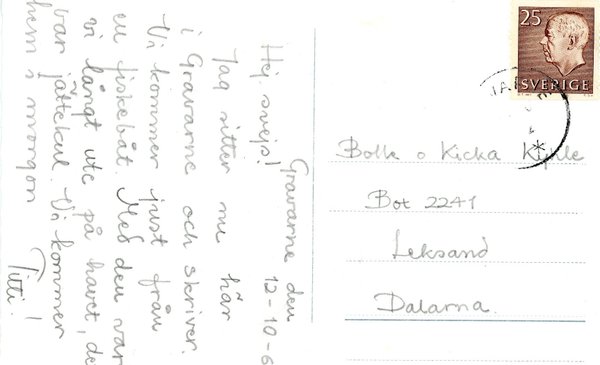 Gravarne den
12-10-6
Hej svejs!
Jag sitter nu här
i Gravarne och skriver.
Vi kommer just från
en fiskebåt. Med den var
vi långt ute på havet, de
var jättekul. Vi kommer
hem i morgon
Titti!
25
SVERIGE
Bolle o Kicka
Bot 2241
Leksand
Dalarna.